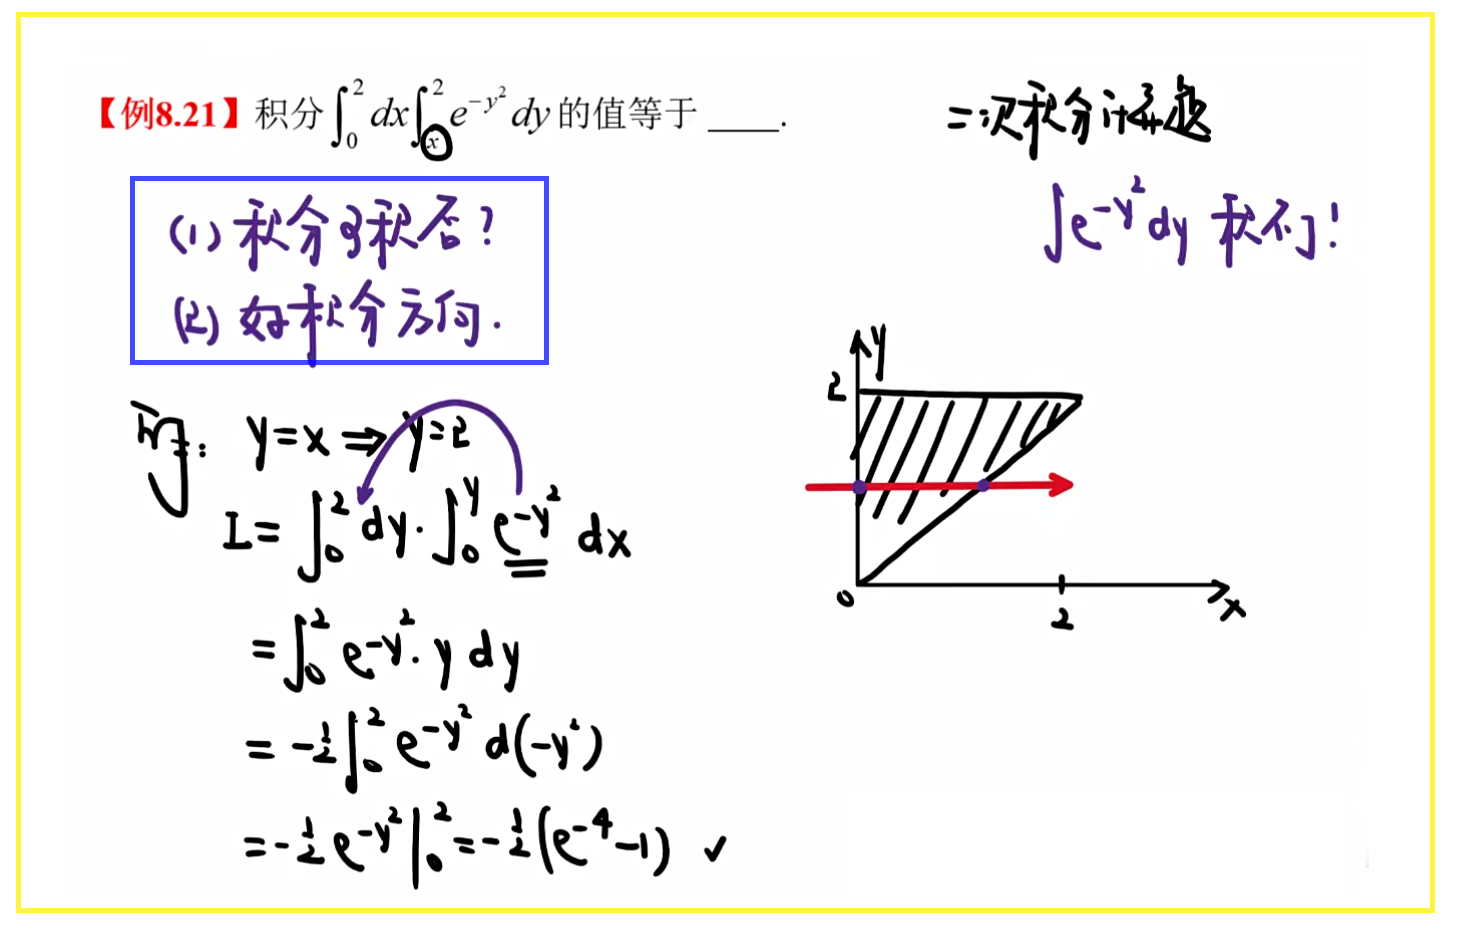 【例8.21】积分∫₀² dx∫ₓ² e^{-y²} dy 的值等于 ____.
二次积分计算题
∫e^{-y²}dy 积不了!
(1) 积分可积否?
(2) 好积分方向.
y=x ⇒ y=2
I= ∫₀² dy·∫₀^y e^{-y²} dx
=∫₀² e^{-y²}·y dy
= -½∫₀² e^{-y²} d(-y²)
=-½ e^{-y²}|₀² =-½(e^{-4}-1) ✓
y
2
0
2
x